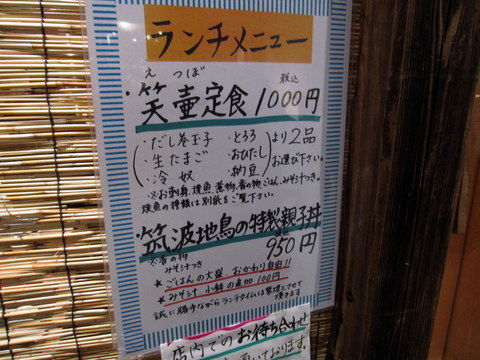 ランチメニュー
えつぼ
税込
・笑壷定食 1000円
・だし巻玉子 ・とろろ
・生たまご ・おひたし
・冷奴 ・納豆
より2品
お選び下さい。
※お刺身、焼魚、煮物、香の物、ごはん、みそ汁つき。
焼魚の種類は別紙をご覧下さい。
・筑波地鳥の特製親子丼
※香の物
みそ汁つき
950円
★ごはんの大盛、おかわり自由!!
★みそ汁、小鉢の追加100円
誠に勝手ながらランチタイムは禁煙とさせて
頂きます
店内でのお待ち合わせ